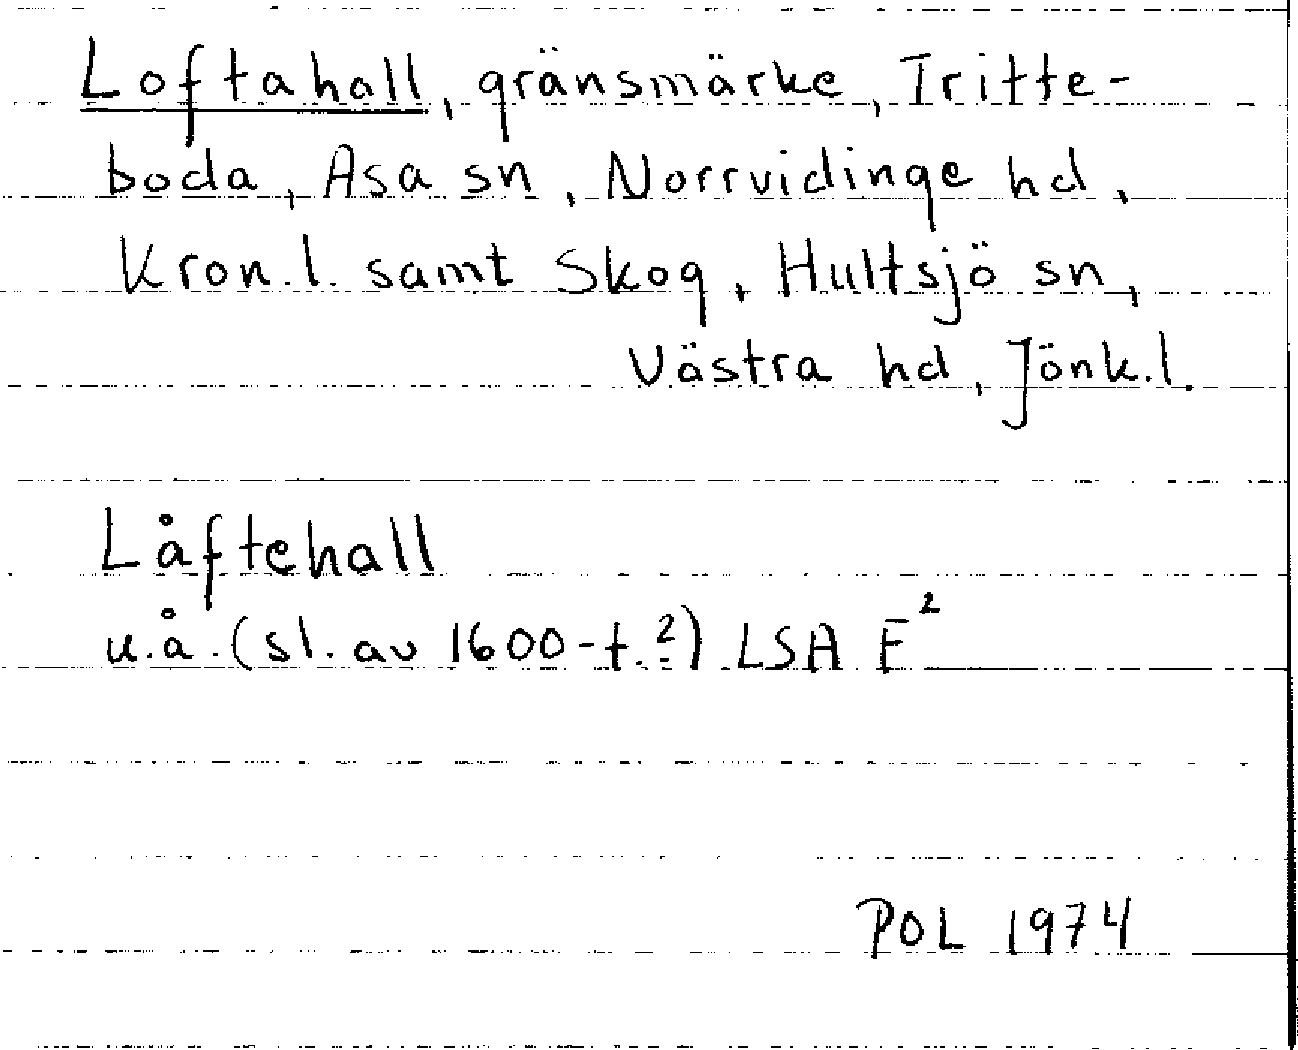 Loftahall, gränsmärke, Tritte-
boda, Asa sn, Norrvidinge hd,
Kron.l. samt Skog, Hultsjö sn,
Västra hd, Jönk.l.
Låftehall
u.å. (sl. av 1600-t.?) LSA E²
POL 1974